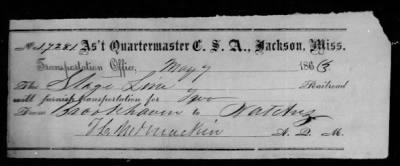 No 17281 As't Quartermaster C. S. A., Jackson, Miss.
Transportation Office, May 9 1863
The Stage Line Railroad
will furnish transportation for Two
From Brookhaven to Natchez
A. Q. M.